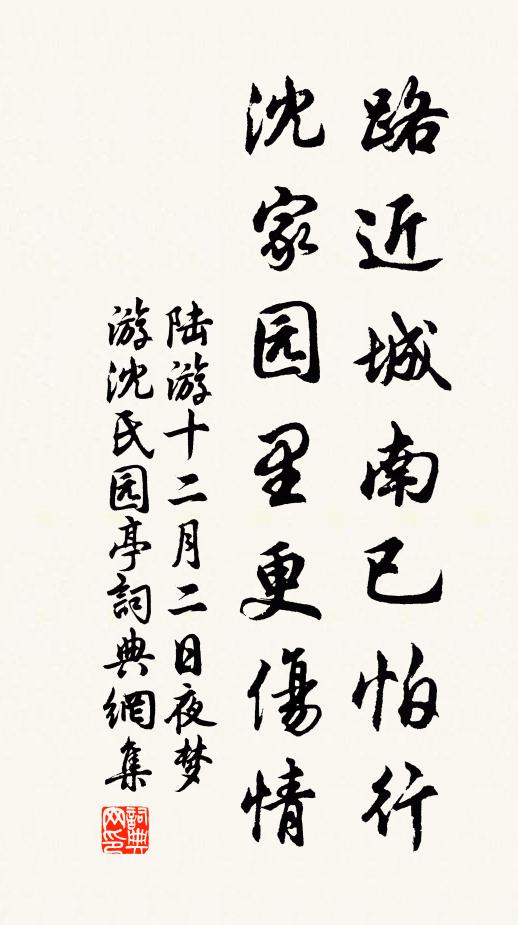 路近城南已怕行
沈家园里更傷情
陆游十二月二日夜梦
游沈氏园亭詞典網集
詞典
网印